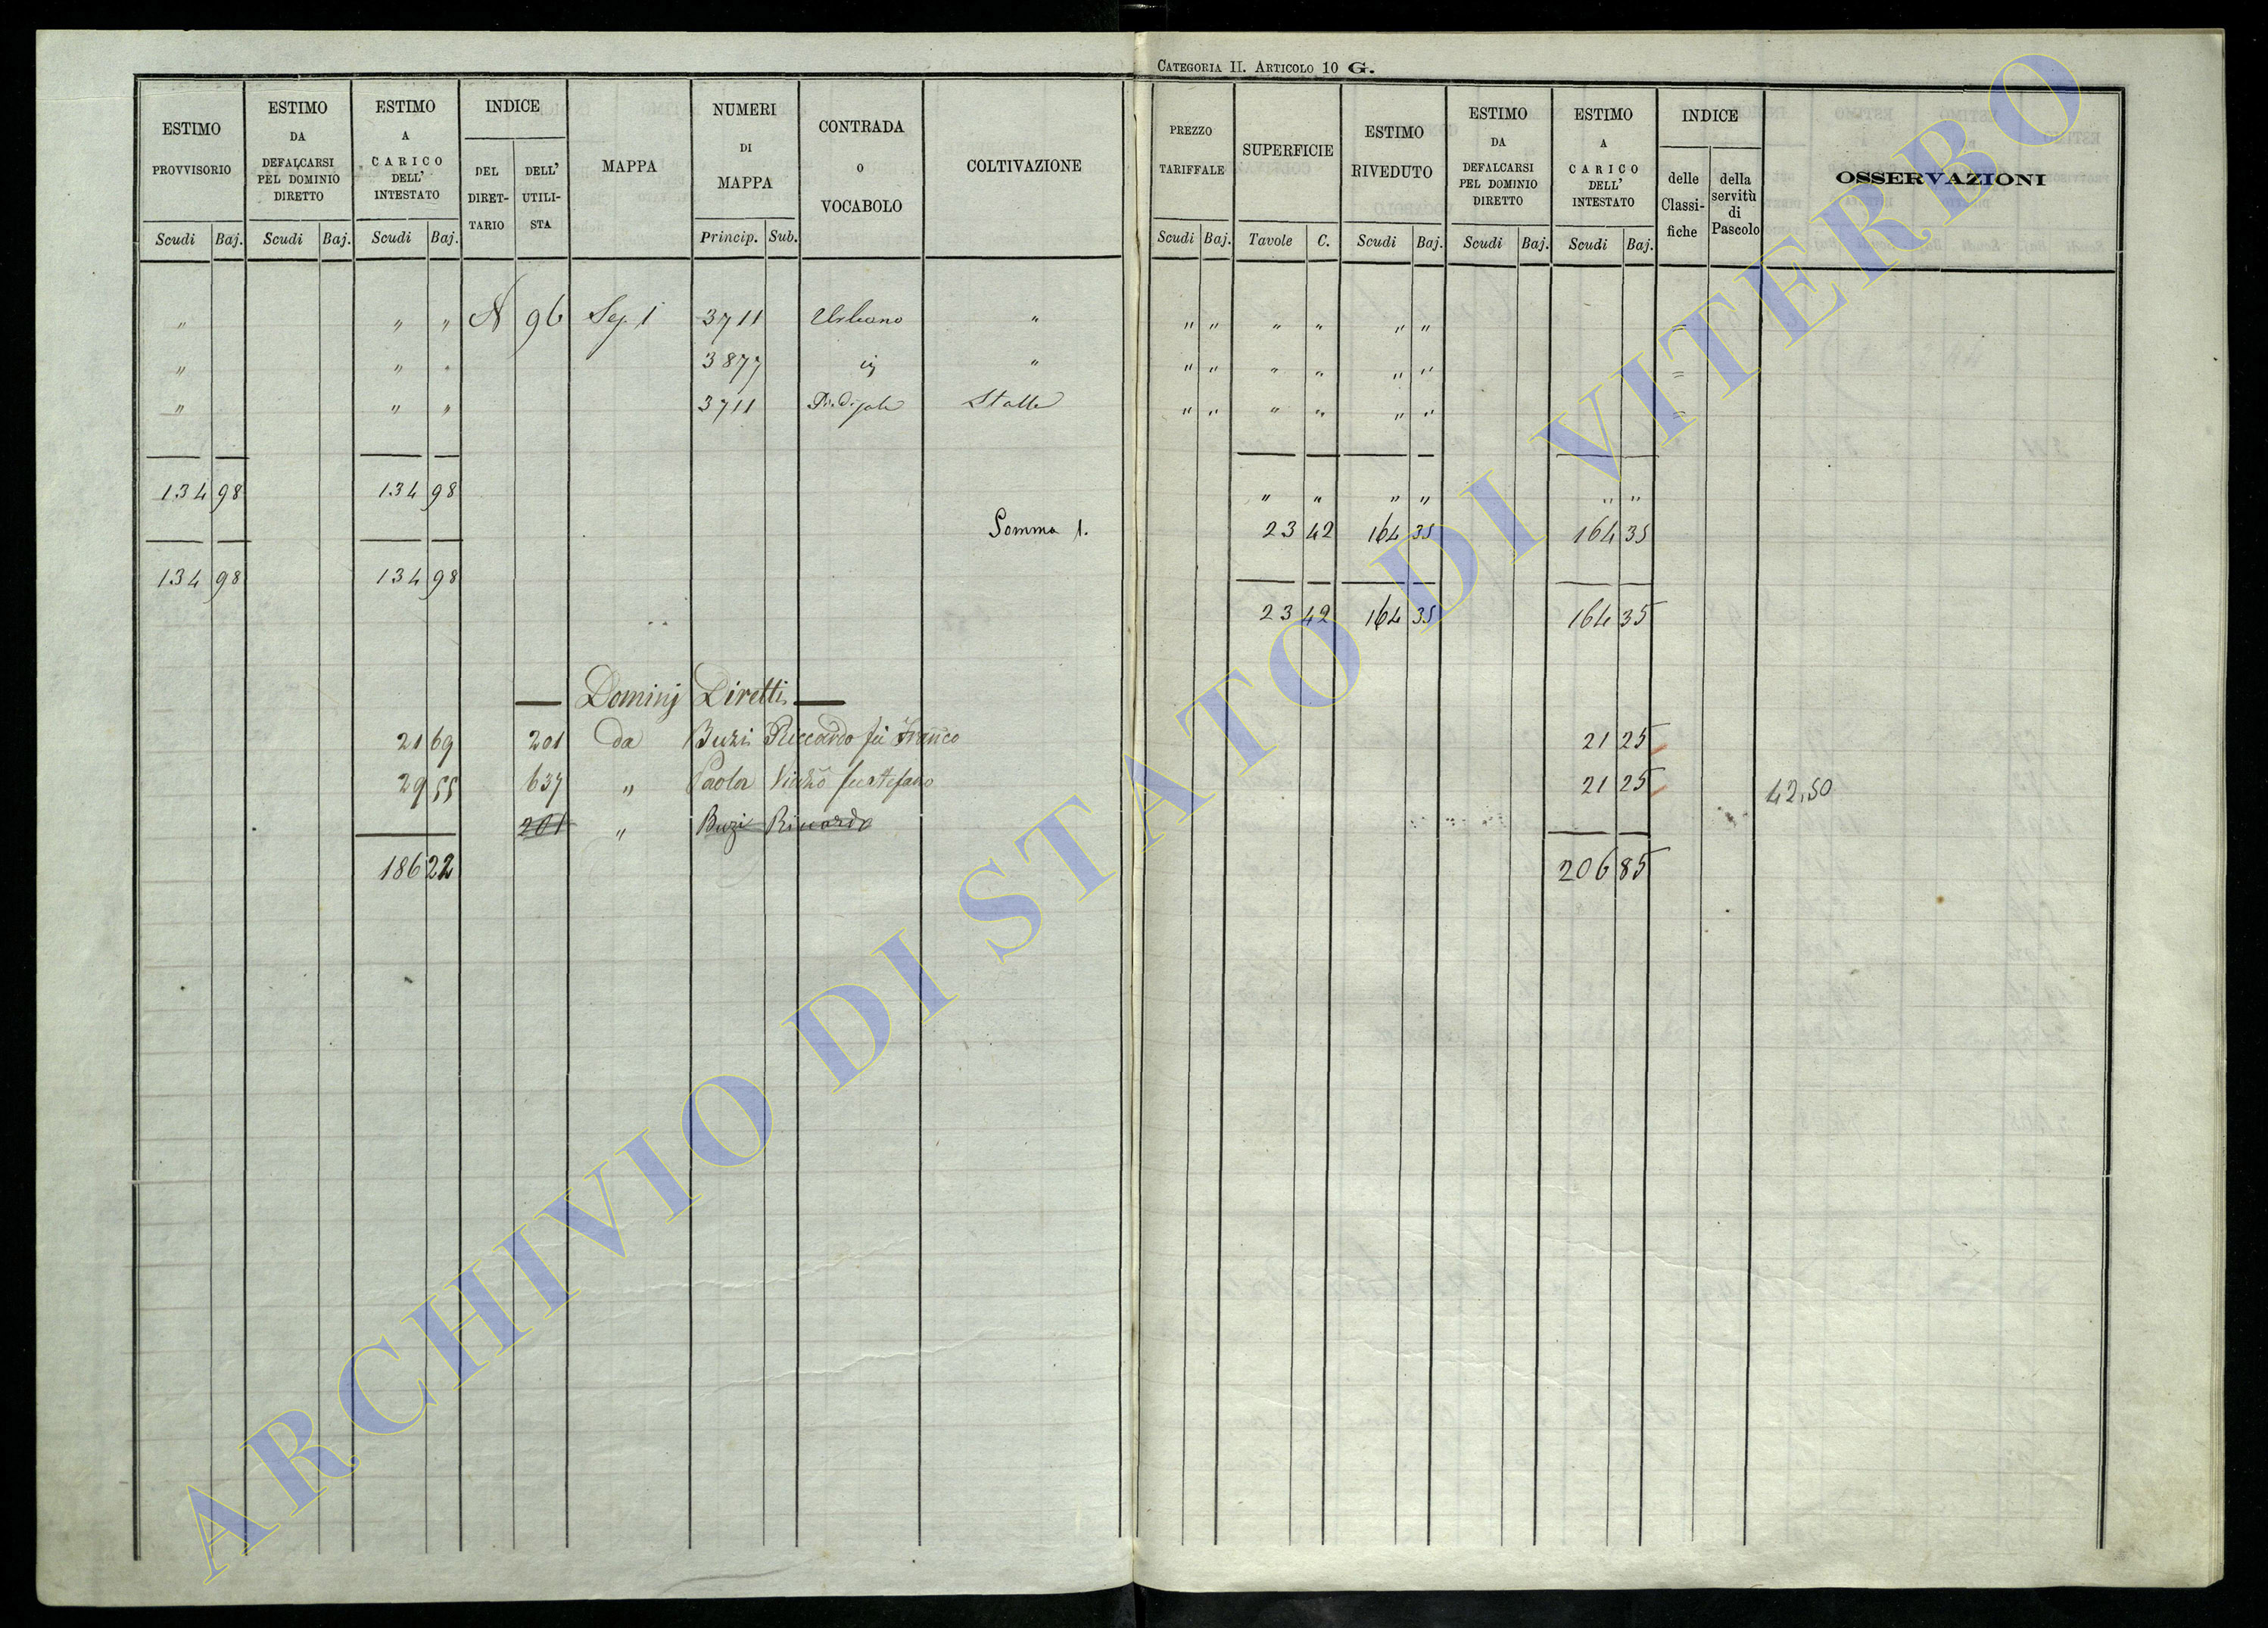 CATEGORIA II. ARTICOLO 10 G.
ESTIMO PROVVISORIO
ESTIMO DA DEFALCARSI PEL DOMINIO DIRETTO
ESTIMO A CARICO DELL' INTESTATO
INDICE
DEL DIRET-TARIO
DELL' UTILI-STA
MAPPA
NUMERI DI MAPPA
CONTRADA o VOCABOLO
COLTIVAZIONE
PREZZO TARIFFALE
SUPERFICIE
ESTIMO RIVEDUTO
ESTIMO DA DEFALCARSI PEL DOMINIO DIRETTO
ESTIMO A CARICO DELL' INTESTATO
INDICE
delle Classi-fiche
della servitù di Pascolo
OSSERVAZIONI
Scudi Baj. Scudi Baj. Scudi Baj. Princip. Sub. Scudi Baj. Tavole C. Scudi Baj. Scudi Baj. Scudi Baj.
" " " N 96 Sez. 1 3711 Urbano " " " " " " " =
" " " 3877 " " " " " " " =
" " " 3711 Stalla " " " " " " =
134 98 134 98 " " " " " "
Somma 1. 23 42 164 35 164 35
134 98 134 98
23 42 164 35 164 35
Dominj Diretti
21 69 201 da Buzi Riccardo fu Franco 21 25
29 55 637 " Paola fu Stefano 21 25 42,50
201 " Buzi Riccardo
186 22 206 85
ARCHIVIO DI STATO DI VITERBO